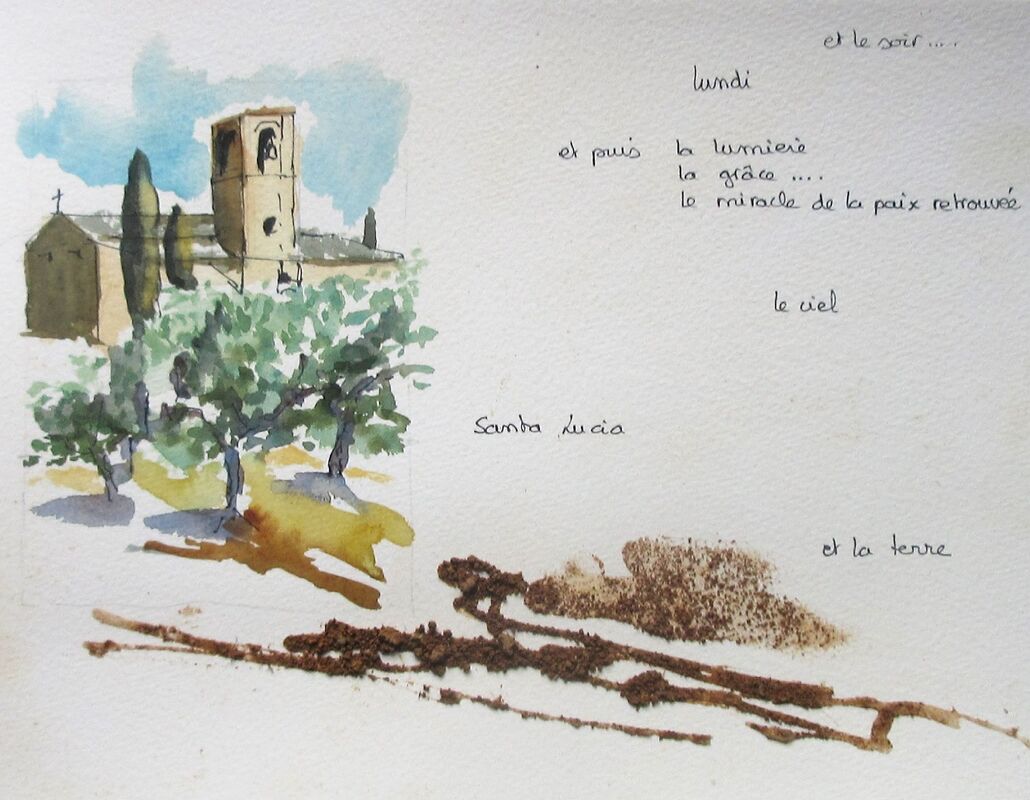 et le soir....
lundi
et puis la lumière
la grâce....
le miracle de la paix retrouvée
le ciel
Santa Lucia
et la terre